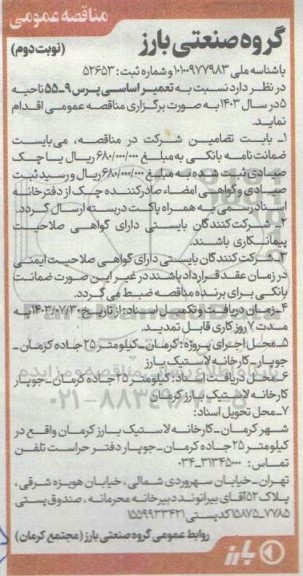 مناقصه عمومی
گروه صنعتی بارز (نوبت دوم)
باشناسه ملی ۱۰۱۰۰۹۷۷۹۸۳ و شماره ثبت: ۵۲۶۵۳
در نظر دارد نسبت به تعمیر اساسی پرس ۹-۵۵ ناحیه
۵ در سال ۱۴۰۳ به صورت برگزاری مناقصه عمومی اقدام
نماید.
۱_ بابت تضامین شرکت در مناقصه، می‌بایست
ضمانت نامه بانکی به مبلغ ۶۸۰/۰۰۰/۰۰۰ ریال یا چک
صیادی ثبت شده به مبلغ ۶۸۰/۰۰۰/۰۰۰ ریال و رسید ثبت
صیادی و گواهی امضاء صادرکننده چک از دفترخانه
اسناد رسمی به همراه پاکت دربسته ارسال گردد.
۲_شرکت کنندگان بایستی دارای گواهی صلاحیت
پیمانکاری باشند.
۳_شرکت کنندگان بایستی دارای گواهی صلاحیت ایمنی
در زمان عقد قرارداد باشند در غیر این صورت ضمانت
بانکی برای برنده مناقصه ضبط می گردد.
۴_زمان دریافت و تکمیل اسناد: از تاریخ ۱۴۰۳/۰۷/۳۰ به
مدت ۷ روز کاری قابل تمدید.
۵_محل اجرای پروژه: کرمان_کیلومتر ۲۵ جاده کرمان_
جوپار_کارخانه لاستیک بارز
۶_محل دریافت اسناد: کیلومتر ۲۵ جاده کرمان_جوپار
کارخانه لاستیک بارز کرمان
۷_محل تحویل اسناد:
شهر کرمان_کارخانه لاستیک بارز کرمان واقع در
کیلومتر ۲۵ جاده کرمان_جوپار دفتر حراست تلفن
تماس: ۳۱۳۴۵۰۰۰-۰۳۴
تهران_خیابان سهروردی شمالی، خیابان هویزه شرقی،
پلاک ۵۲ آقای بیرانوند دبیرخانه محرمانه، صندوق پستی
۷۷۸۵_۱۵۸۷۵ کدپستی ۱۵۵۹۹۳۳۴۲۱
روابط عمومی گروه صنعتی بارز (مجتمع کرمان)
بارز